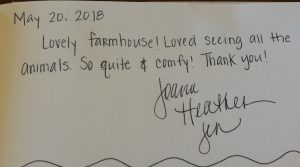 May 20, 2018
Lovely farmhouse! Loved seeing all the
animals. So quite & comfy! Thank you!
Joann
Heather
Jen